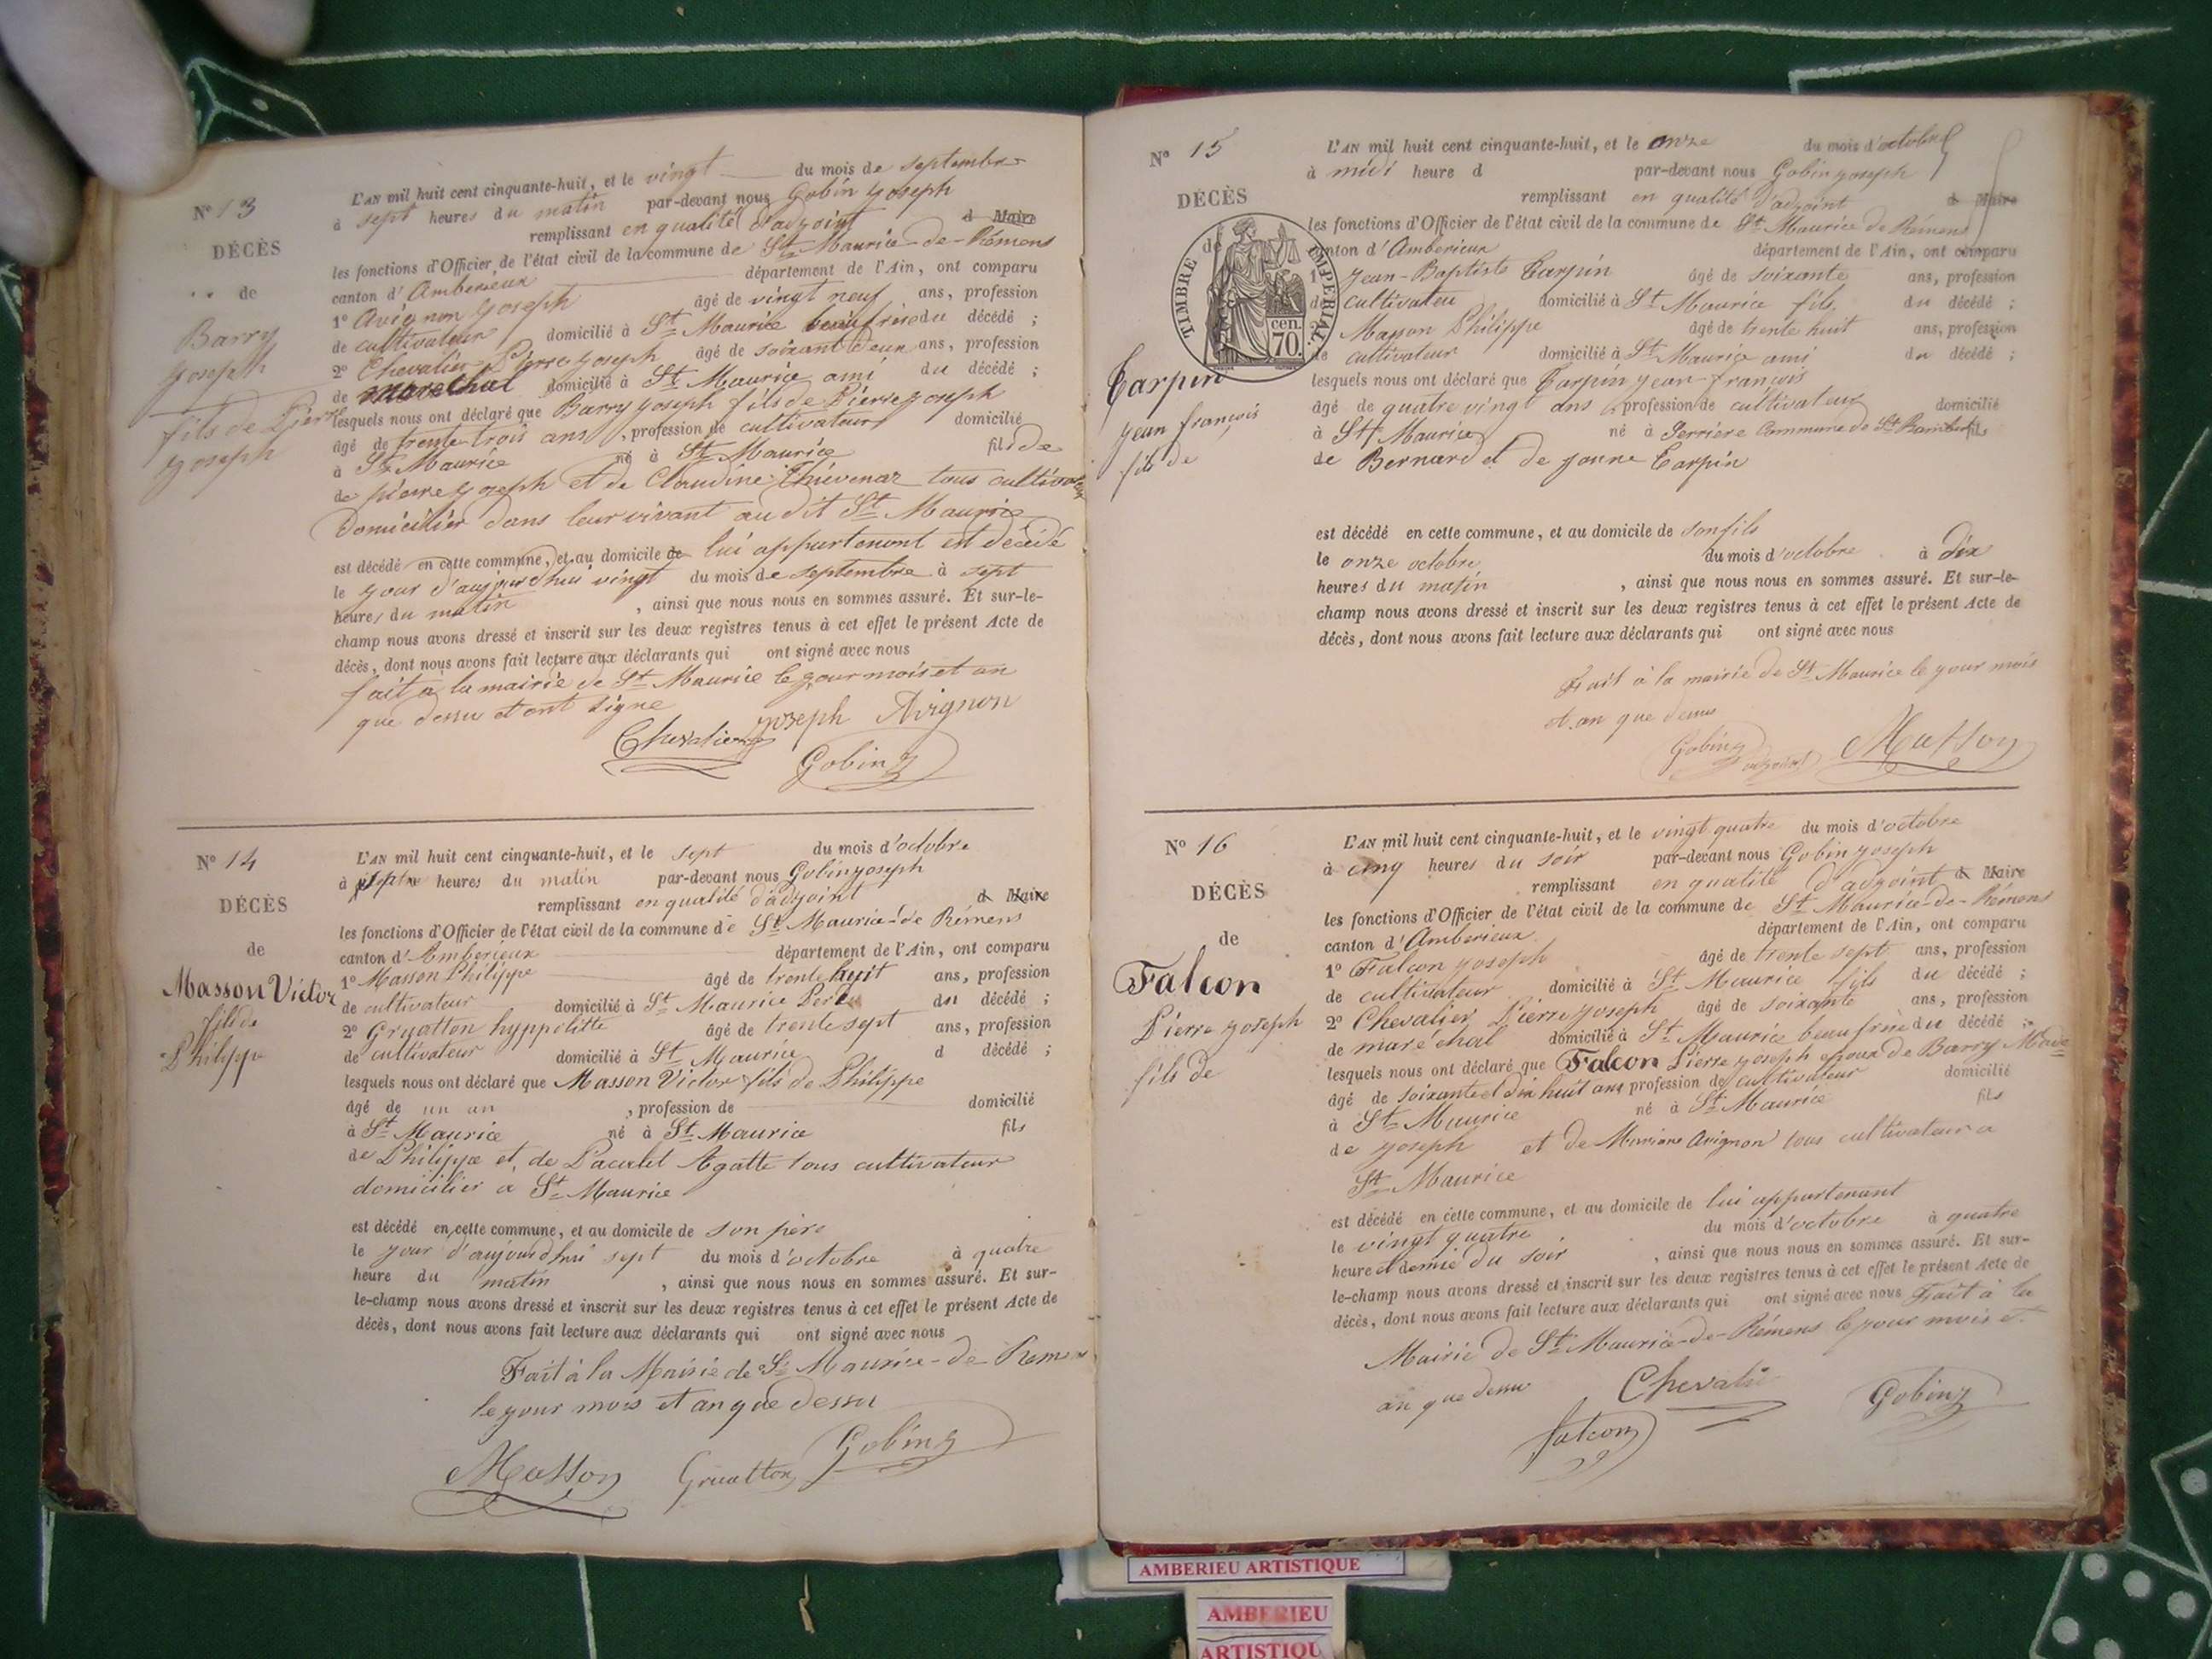 N° 13
DÉCÈS
de
Barry
Joseph
fils de Pierre
Joseph
L'AN mil huit cent cinquante-huit, et le vingt du mois de septembre
à sept heures du matin par-devant nous Gobin Joseph
remplissant en qualité d'adjoint d Maire
les fonctions d'Officier de l'état civil de la commune de St Maurice-de-Rémens
canton d'Amberieux département de l'Ain, ont comparu
1° Avignon Joseph âgé de vingt neuf ans, profession
de cultivateur domicilié à St Maurice beaufrère du décédé ;
2° Chevalier Pierre Joseph âgé de soixant deux ans, profession
de marechal domicilié à St Maurice ami du décédé ;
lesquels nous ont déclaré que Barry Joseph fils de Pierre Joseph
âgé de trente trois ans, profession de cultivateur domicilié
à St Maurice né à St Maurice fils de
de pierre Joseph et de Claudine Thévenar tous cultivateur
domicilier dans leur vivant au dit St Maurice
est décédé en cette commune, et au domicile de lui appartenant est décédé
le jour d'aujourdhui vingt du mois de septembre à sept
heures du matin, ainsi que nous nous en sommes assuré. Et sur-le-
champ nous avons dressé et inscrit sur les deux registres tenus à cet effet le présent Acte de
décès, dont nous avons fait lecture aux déclarants qui ont signé avec nous
fait à la mairie de St Maurice le jour mois et an
que dessu et ont signé
Chevalier Joseph Avignon
Gobin
N° 14
DÉCÈS
de
Masson Victor
fils de
Philippe
L'AN mil huit cent cinquante-huit, et le sept du mois d'octobre
à heures du matin par-devant nous Gobin Joseph
remplissant en qualité d'adjoint d Maire
les fonctions d'Officier de l'état civil de la commune de St Maurice-de Rémens
canton d'Amberieux département de l'Ain, ont comparu
1° Masson Philippe âgé de trente huit ans, profession
de cultivateur domicilié à St Maurice Père du décédé ;
2° Gruatton hyppolitte âgé de trente sept ans, profession
de cultivateur domicilié à St Maurice d décédé ;
lesquels nous ont déclaré que Masson Victor fils de Philippe
âgé de un an, profession de domicilié
à St Maurice né à St Maurice fils
de Philippe et de Pacalet Agatte tous cultivateur
domicilier a St Maurice
est décédé en cette commune, et au domicile de son père
le jour d'aujourdhui sept du mois d'octobre à quatre
heure du matin, ainsi que nous nous en sommes assuré. Et sur-
le-champ nous avons dressé et inscrit sur les deux registres tenus à cet effet le présent Acte de
décès, dont nous avons fait lecture aux déclarants qui ont signé avec nous
Fait à la Mairie de St Maurice-de Remens
le jour mois et an que dessu
Masson Gruatton Gobin
N° 15
DÉCÈS
de
TIMBRE IMPÉRIAL
70 cen.
Carpin
Jean françois
fils de
L'AN mil huit cent cinquante-huit, et le onze du mois d'octobre
à midi heure d par-devant nous Gobin Joseph
remplissant en qualité d'adjoint d Maire
les fonctions d'Officier de l'état civil de la commune de St Maurice de Rémens
canton d'Amberieux département de l'Ain, ont comparu
1° Jean-Baptiste Carpin âgé de soixante ans, profession
de cultivateu domicilié à St Maurice fils du décédé ;
Masson Philippe âgé de trente huit ans, profession
de cultivateur domicilié à St Maurice ami du décédé ;
lesquels nous ont déclaré que Carpin Jean-françois
âgé de quatre vingt ans, profession de cultivateur domicilié
à St Maurice né à Serriere Commune de St Rambert fils
de Bernard et de Janne Carpin
est décédé en cette commune, et au domicile de son fils
le onze octobre du mois d'octobre à dix
heures du matin, ainsi que nous nous en sommes assuré. Et sur-le-
champ nous avons dressé et inscrit sur les deux registres tenus à cet effet le présent Acte de
décès, dont nous avons fait lecture aux déclarants qui ont signé avec nous
Fait à la mairie de St Maurice le jour mois
et an que dessus
Gobin adjoint Masson
N° 16
DÉCÈS
de
Falcon
Pierre Joseph
fils de
L'AN mil huit cent cinquante-huit, et le vingt quatre du mois d'octobre
à cinq heures du soir par-devant nous Gobin Joseph
remplissant en qualité d'adjoint d Maire
les fonctions d'Officier de l'état civil de la commune de St Maurice-de-Rémens
canton d'Amberieux département de l'Ain, ont comparu
1° Falcon Joseph âgé de trente sept ans, profession
de cultivateur domicilié à St Maurice fils du décédé ;
2° Chevalier Pierre Joseph âgé de soixante ans, profession
de maréchal domicilié à St Maurice beau frère du décédé ;
lesquels nous ont déclaré que Falcon Pierre Joseph epoux de Barry
âgé de soixante et dix huit ans profession de cultivateur domicilié
à St Maurice né à St Maurice fils
de Joseph et de Marriane Avignon tous cultivateur a
St Maurice
est décédé en cette commune, et au domicile de lui appartenant
le vingt quatre du mois d'octobre à quatre
heure et demie du soir, ainsi que nous nous en sommes assuré. Et sur-
le-champ nous avons dressé et inscrit sur les deux registres tenus à cet effet le présent Acte de
décès, dont nous avons fait lecture aux déclarants qui ont signé avec nous Fait à la
Mairie de St Maurice-de-Rémens le jour mois et
an que dessu
Chevalie Gobin
falcon
AMBERIEU ARTISTIQUE
AMBERIEU
ARTISTIQU